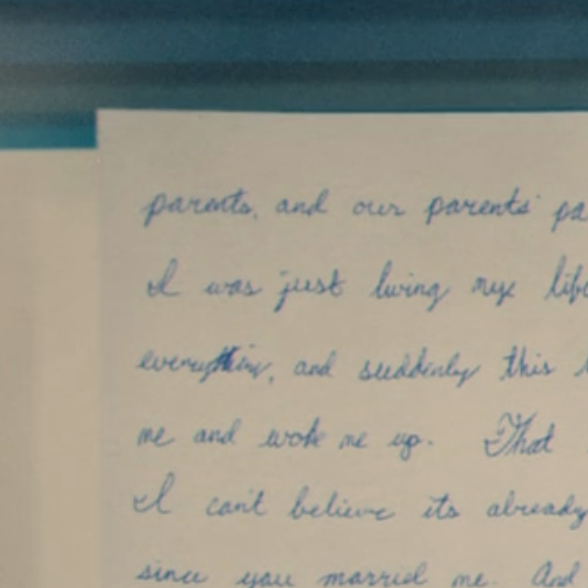 parents, and our parents' pa
I was just living my life
everything, and suddenly this
me and woke me up. That
I can't believe its already
since you married me. And